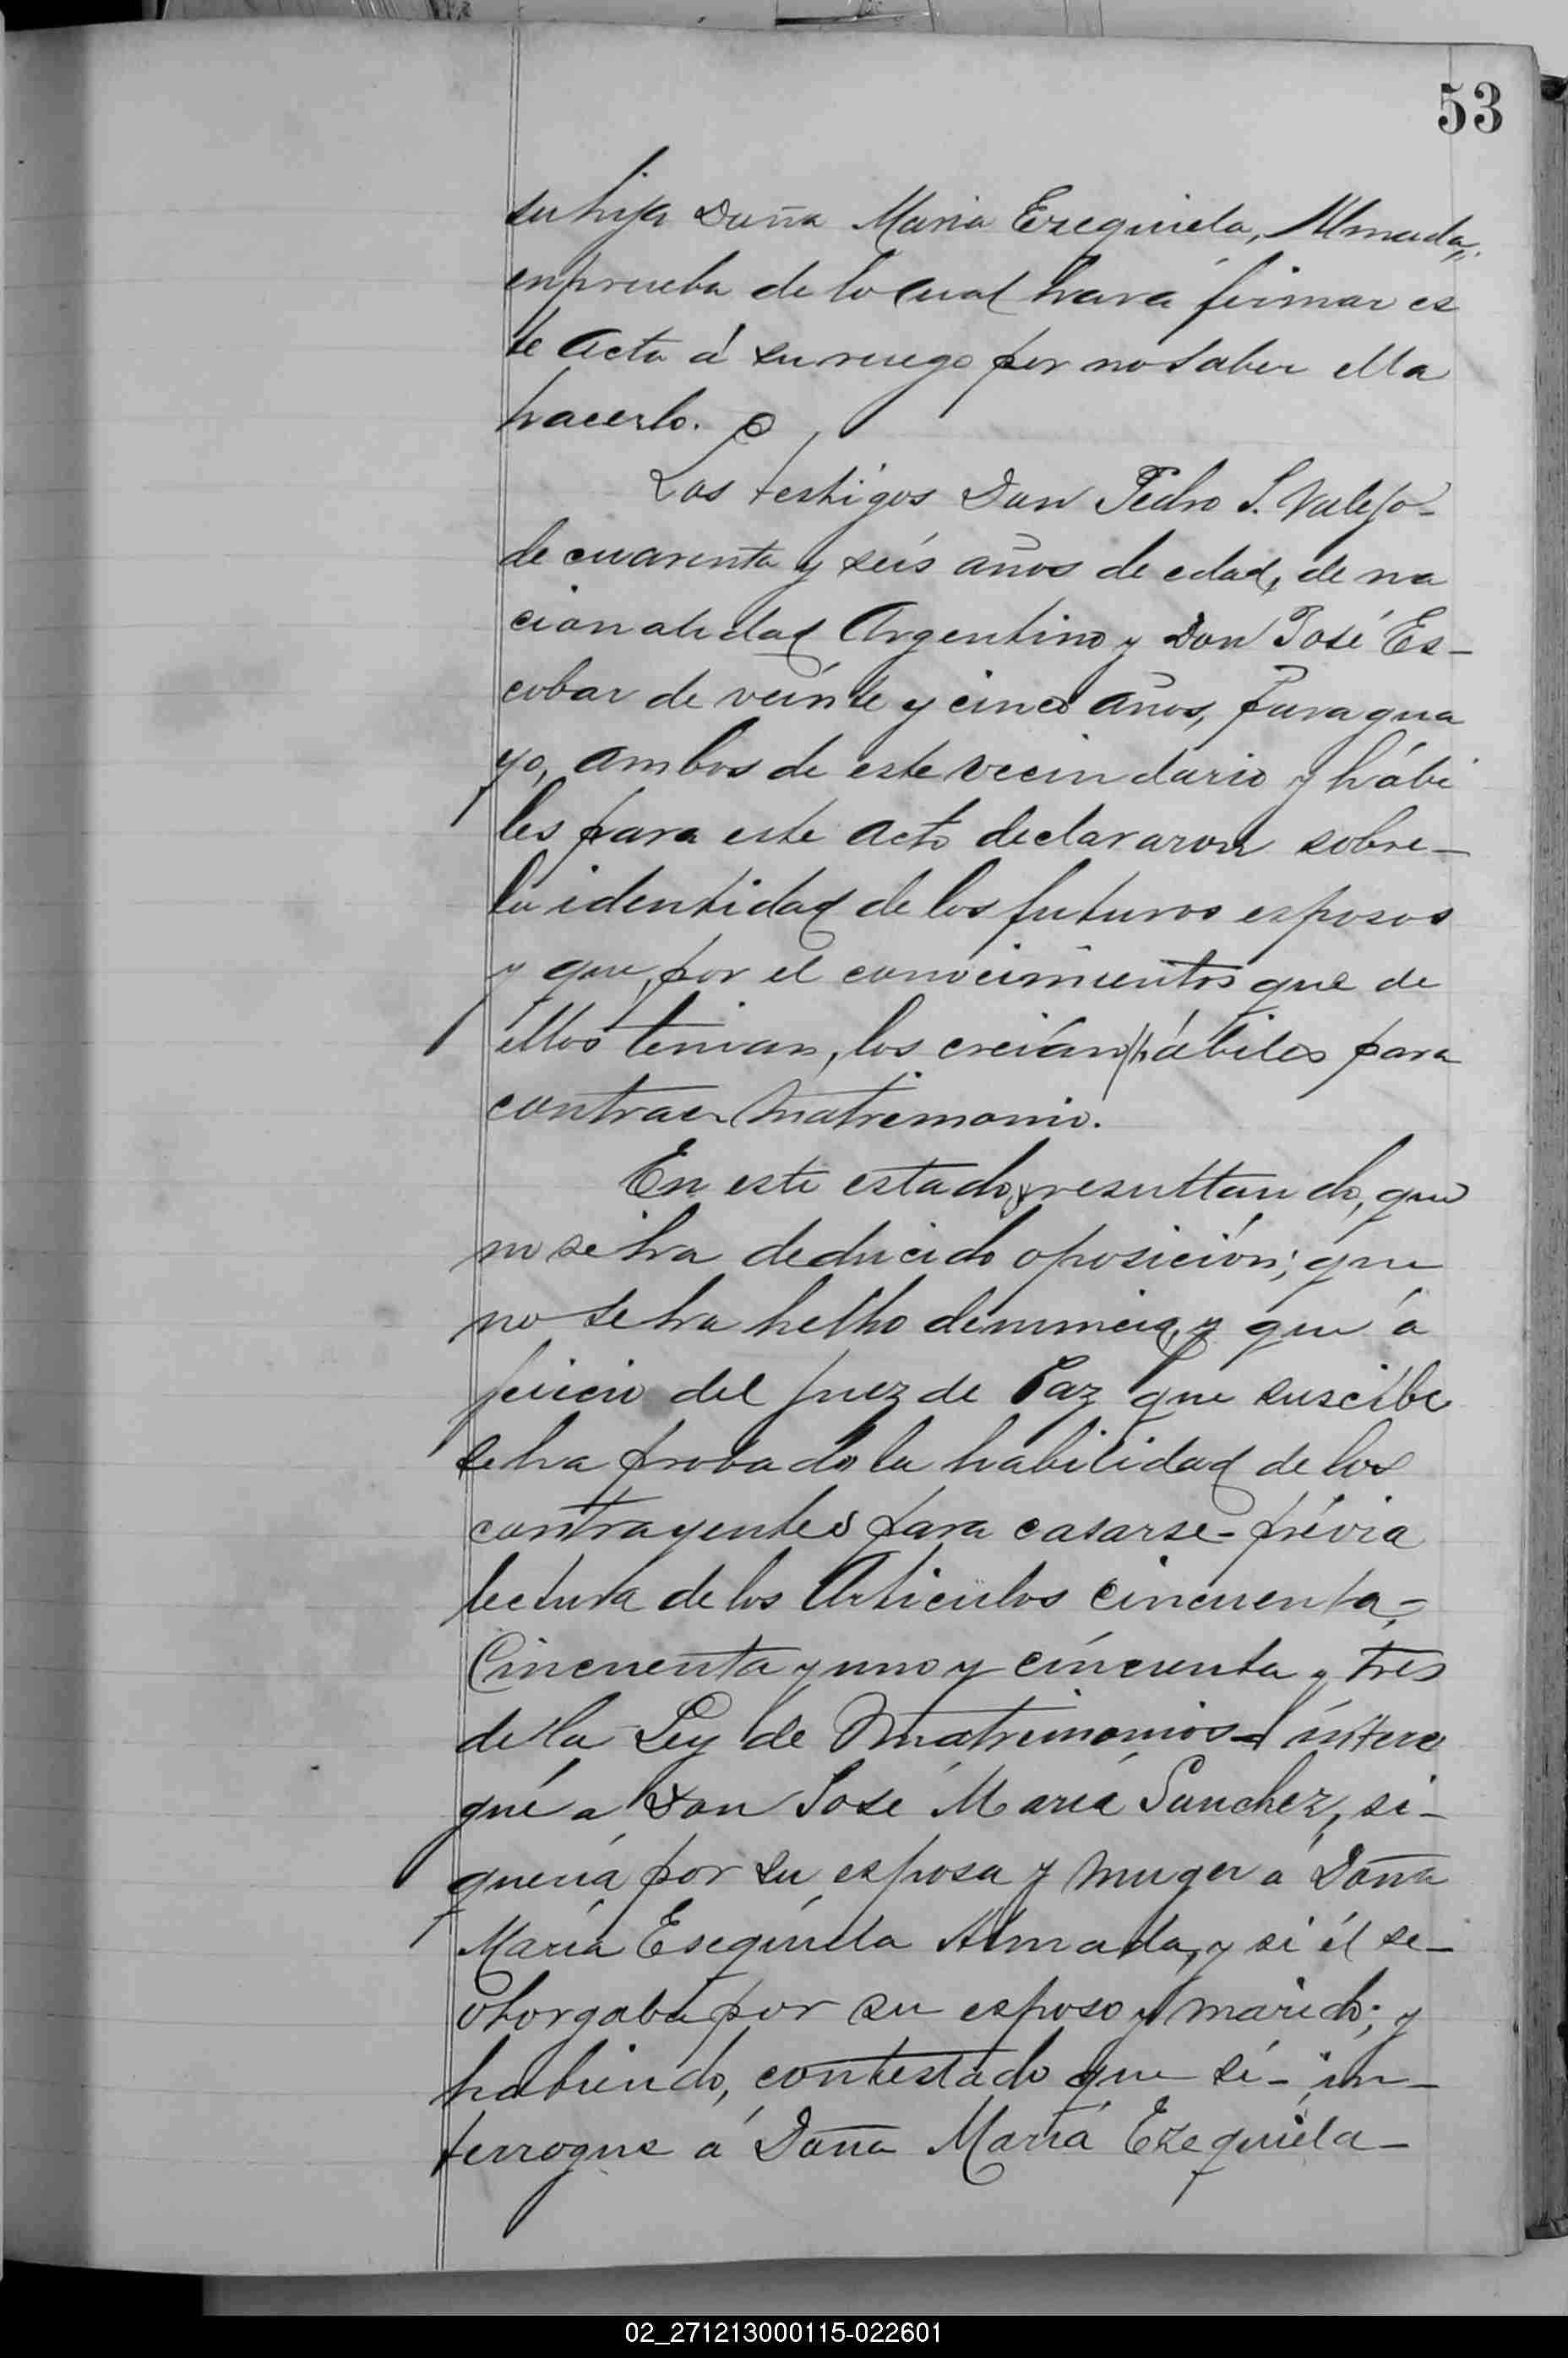 53
su hija Doña Maria Ezequiela, Almada,
en prueba de lo cual hará firmar es
te acta á su ruego por no saber ella
hacerlo.
Los testigos Don Pedro S. Valejo-
de cuarenta y seis años de edad, de na
cionalidad Argentino y Don José Es-
cobar de veinte y cinco años, paragua
yo, ambos de este vecindario y hábi
les para este acto declararon sobre-
la identidad de los futuros esposos
y que, por el conocimientos que de
ellos tenian, los creían hábiles para
contraer matrimonio.
En este estado, resultando, que
no se ha deducido oposición; que
no se ha hecho denuncia, y que á
juicio del Juez de Paz que suscibe
se ha probado la habilidad de los
contrayentes para casarse- prévia
lectura de los Articulos cincuenta,-
Cincuenta y uno y cincuenta y tres
de la Ley de Matrimonios- intero
gué a Don José María Sanchez, si-
quería por su esposa y muger a Doña
María Esequiela Almada, y si él se-
otorgaba por su esposo y marido; y
habiendo, contestado que si- in-
terrogue á Doña María Ezequiela-
02_271213000115-022601